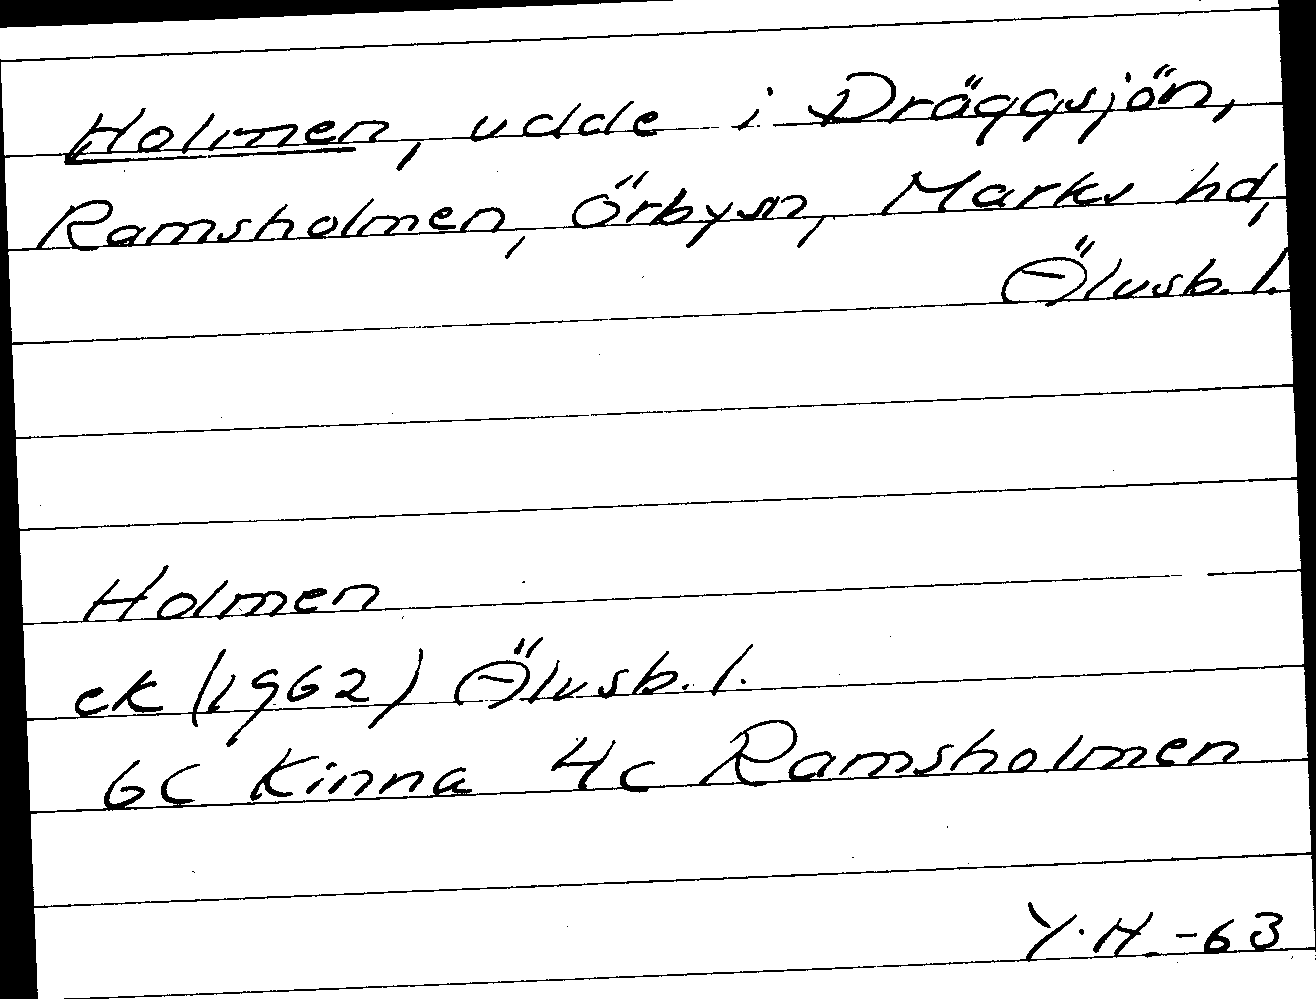 Holmen, udde i Dräggsjön,
Ramsholmen, Örbysn, Marks hd,
Älvsb. l.
Holmen
ek (1962) Älvsb. l.
6C Kinna 4c Ramsholmen
Y.H. -63